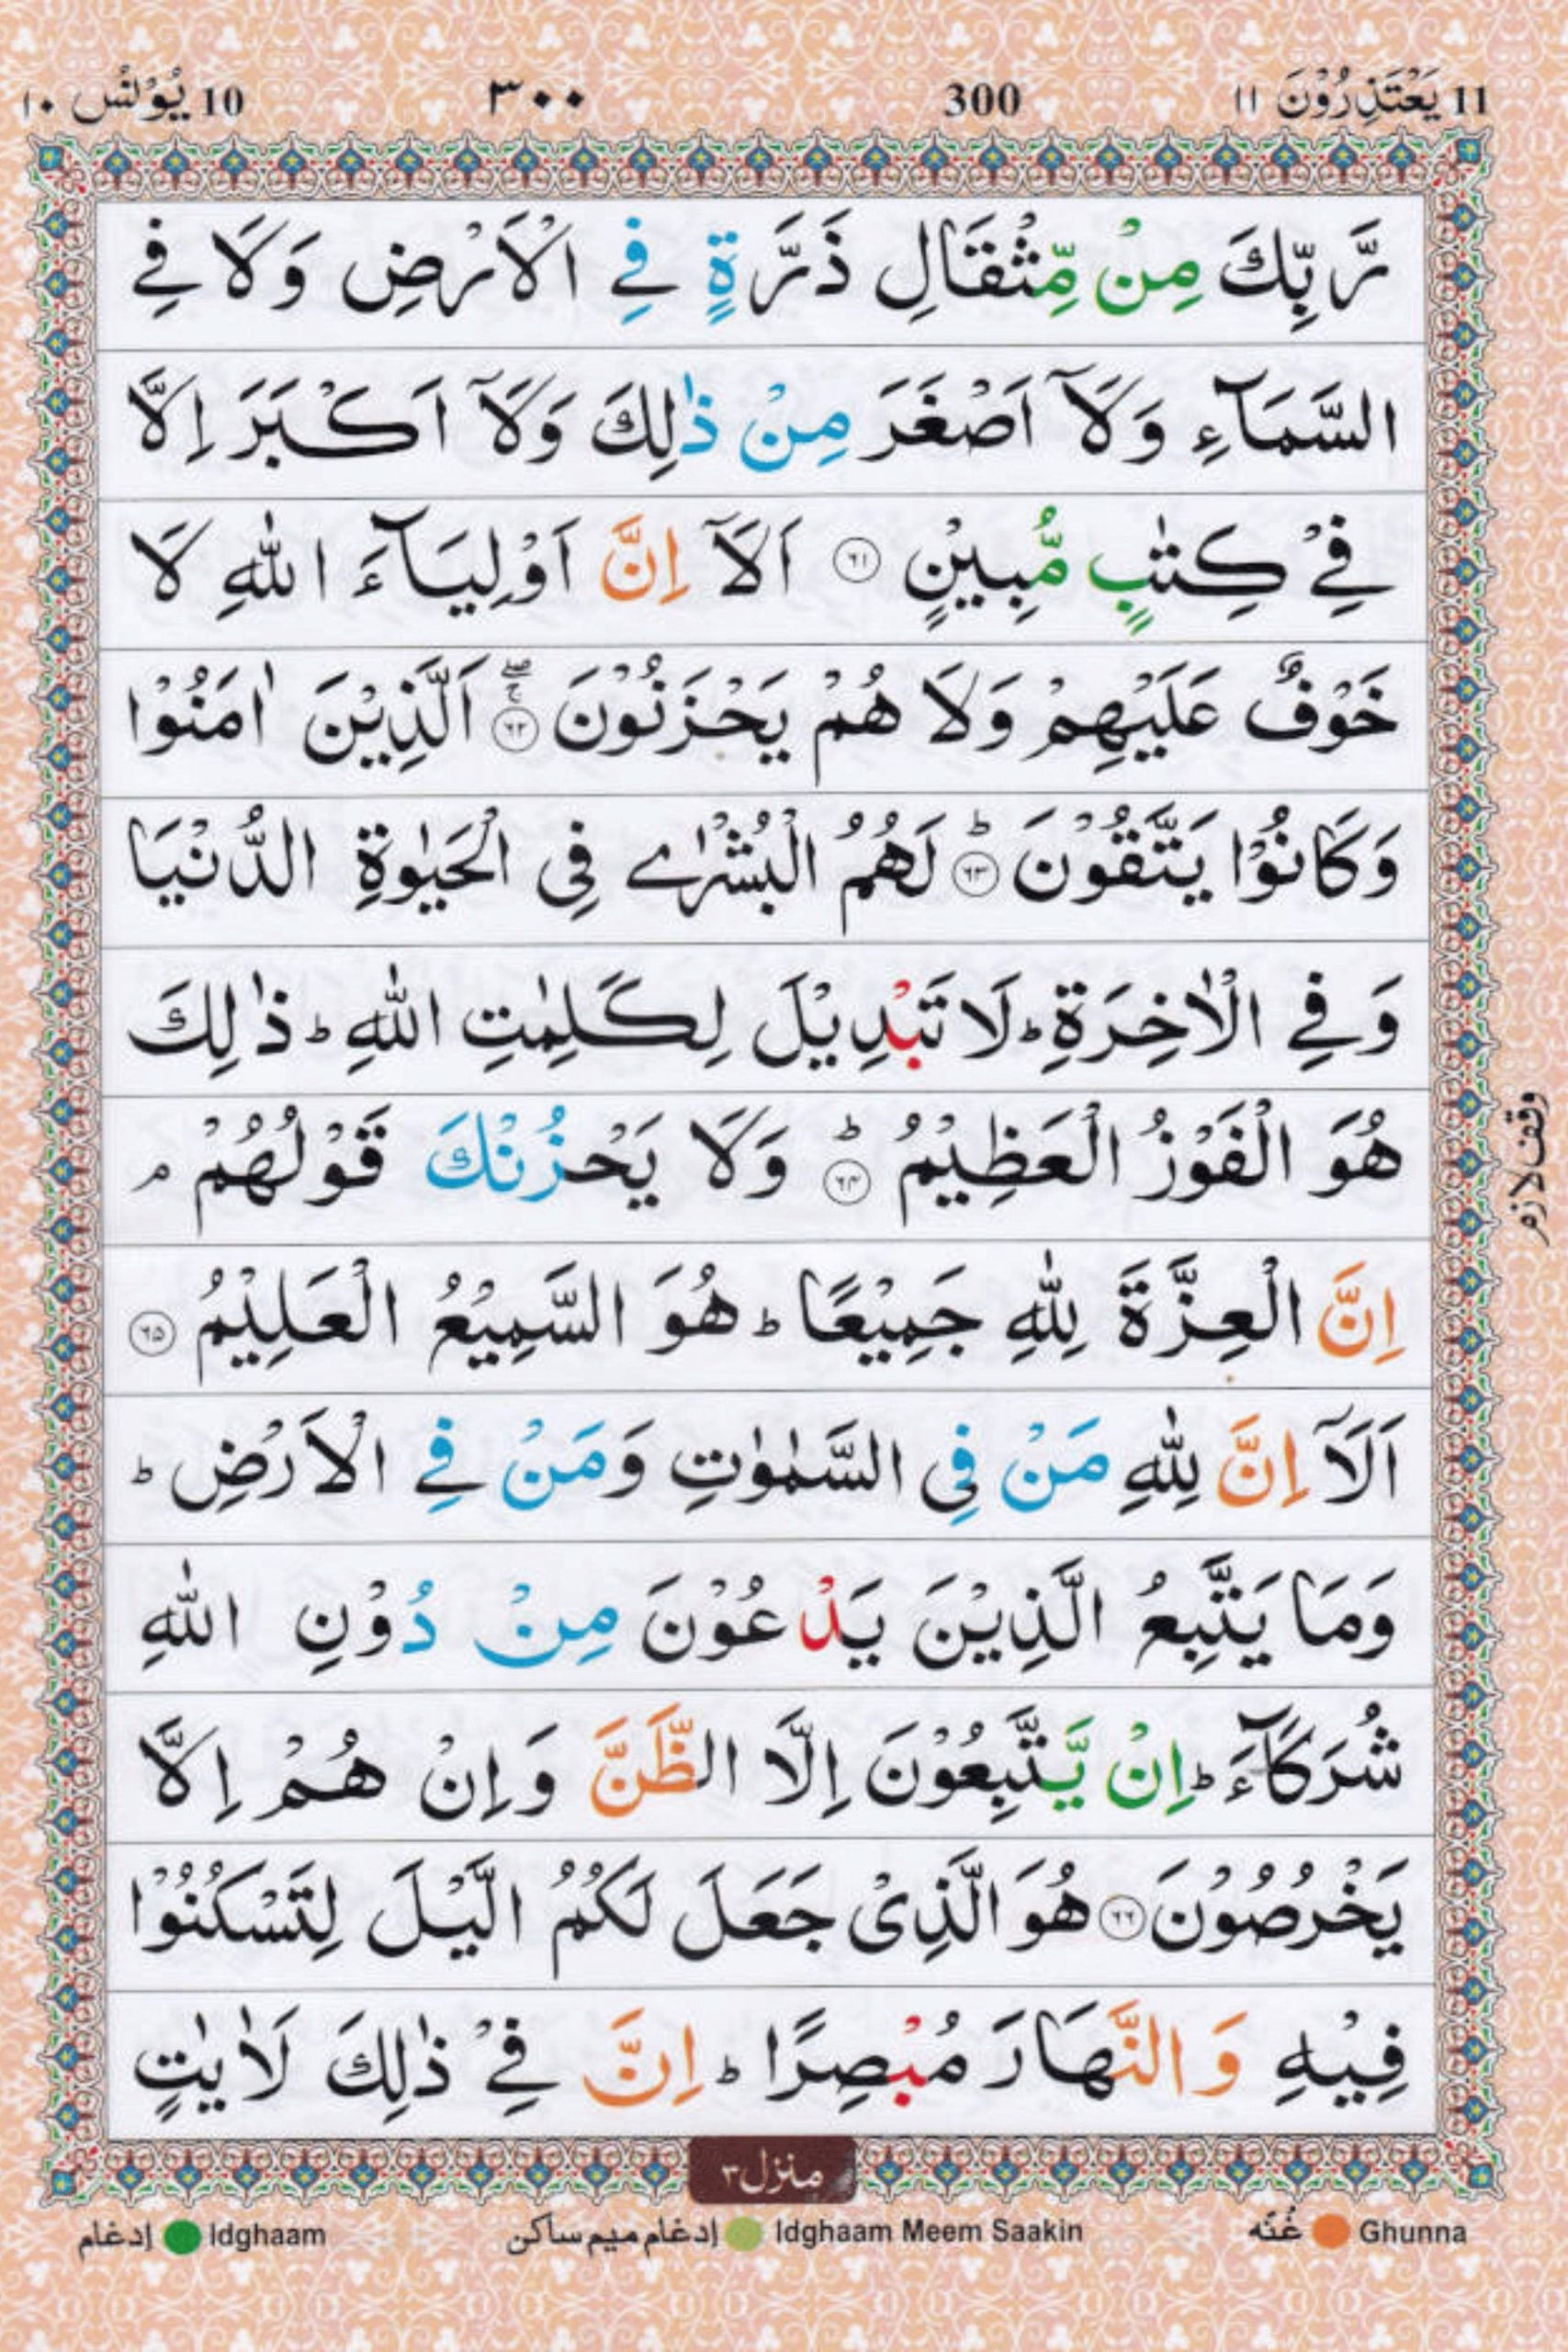 11 يَعْتَذِرُوْنَ ١١ 300 ٣٠٠ 10 يُوْنُس ١٠
رَّبِّكَ مِنْ مِّثْقَالِ ذَرَّةٍ فِي الْاَرْضِ وَلَا فِي
السَّمَآءِ وَلَآ اَصْغَرَ مِنْ ذٰلِكَ وَلَآ اَكْبَرَ اِلَّا
فِيْ كِتٰبٍ مُّبِيْنٍ ۝٦١ اَلَآ اِنَّ اَوْلِيَآءَ اللّٰهِ لَا
خَوْفٌ عَلَيْهِمْ وَلَا هُمْ يَحْزَنُوْنَ ۝٦٢ۚۖ اَلَّذِيْنَ اٰمَنُوْا
وَكَانُوْا يَتَّقُوْنَ ۝٦٣ؕ لَهُمُ الْبُشْرٰى فِى الْحَيٰوةِ الدُّنْيَا
وَفِي الْاٰخِرَةِ ؕ لَا تَبْدِيْلَ لِكَلِمٰتِ اللّٰهِ ؕ ذٰلِكَ
هُوَ الْفَوْزُ الْعَظِيْمُ ۝٦٤ؕ وَلَا يَحْزُنْكَ قَوْلُهُمْ ۘ
وقف لازم
اِنَّ الْعِزَّةَ لِلّٰهِ جَمِيْعًا ؕ هُوَ السَّمِيْعُ الْعَلِيْمُ ۝٦٥
اَلَآ اِنَّ لِلّٰهِ مَنْ فِى السَّمٰوٰتِ وَمَنْ فِي الْاَرْضِ ؕ
وَمَا يَتَّبِعُ الَّذِيْنَ يَدْعُوْنَ مِنْ دُوْنِ اللّٰهِ
شُرَكَآءَ ؕ اِنْ يَّتَّبِعُوْنَ اِلَّا الظَّنَّ وَاِنْ هُمْ اِلَّا
يَخْرُصُوْنَ ۝٦٦ هُوَ الَّذِىْ جَعَلَ لَكُمُ الَّيْلَ لِتَسْكُنُوْا
فِيْهِ وَالنَّهَارَ مُبْصِرًا ؕ اِنَّ فِيْ ذٰلِكَ لَاٰيٰتٍ
منزل ٣
Ghunna غُنّه Idghaam Meem Saakin إدغام ميم ساكن Idghaam إدغام